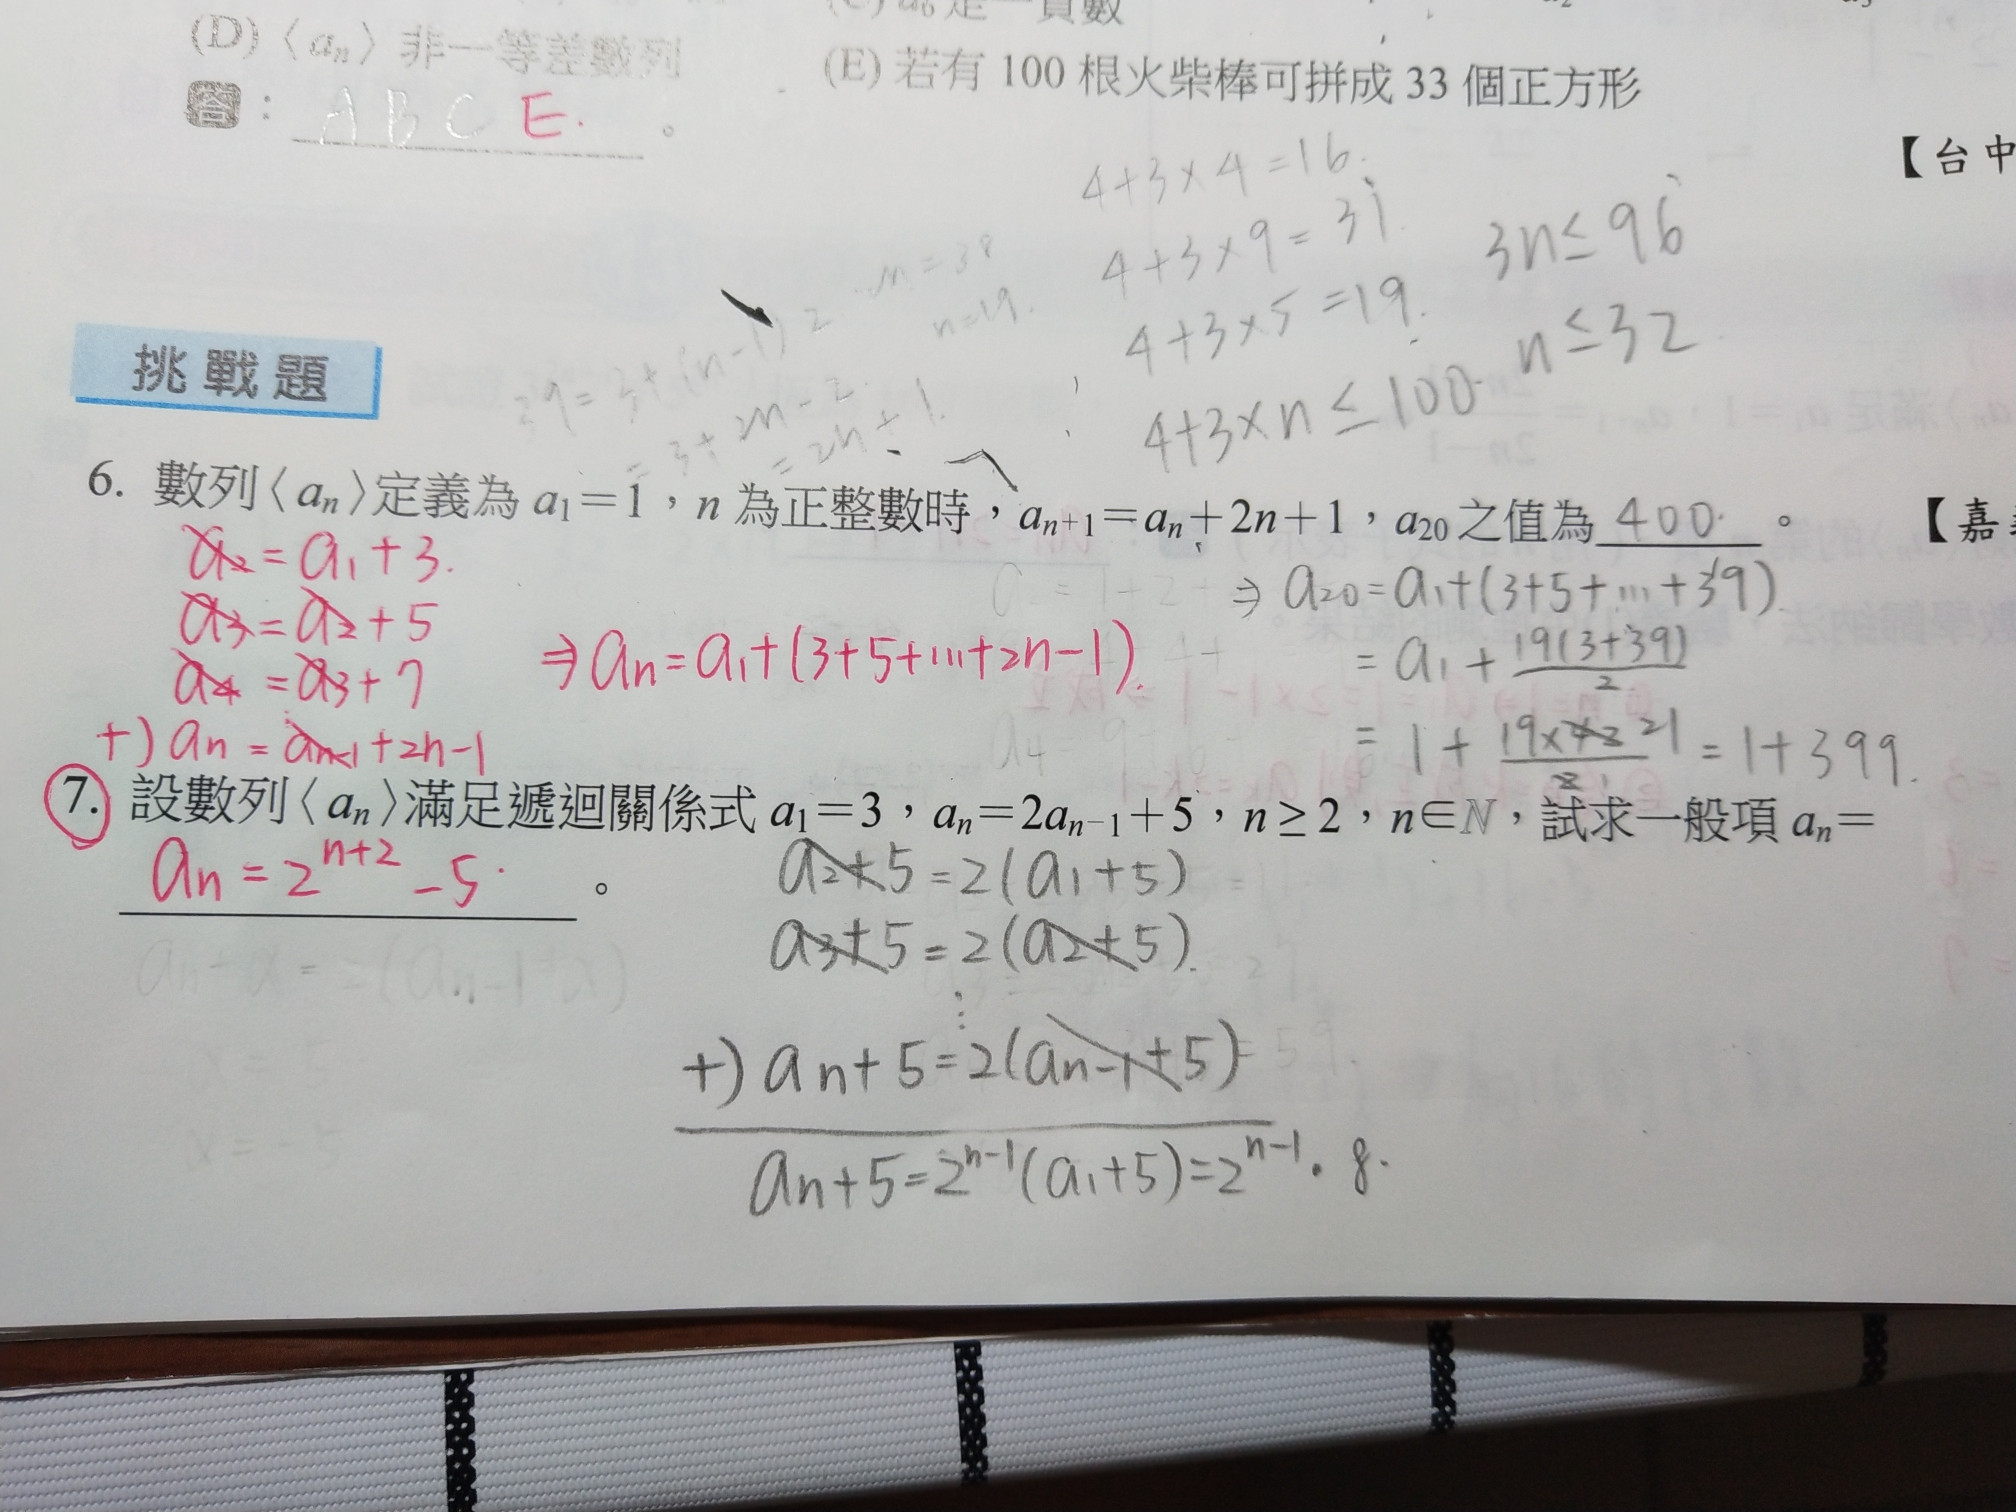 (D)〈an〉非一等差數列
(E) 若有 100 根火柴棒可拼成 33 個正方形
答：A B C E.。
【台中
4+3×4=16.
4+3×9=31.
4+3×5=19.
4+3×n≤100.
3n≤96
n≤32
39=3+(n-1)2
=3+2n-2
=2n+1.
2n=38
n=19.
挑戰題
6. 數列〈an〉定義為 a1=1，n 為正整數時，an+1=an+2n+1，a20之值為 400.。
【嘉
a2=a1+3.
a3=a2+5
a4=a3+7
+) an=an-1+2n-1
⇒an=a1+(3+5+...+2n-1).
⇒ a20=a1+(3+5+...+39).
=a1+19(3+39)/2
=1+19×42 21/2 1=1+399.
7. 設數列〈an〉滿足遞迴關係式 a1=3，an=2an-1+5，n≥2，n∈N，試求一般項 an=
an=2^n+2-5.。
an+x=2(an-1+x)
x=5
x=-5
a2+5=2(a1+5)
a3+5=2(a2+5).
⋮
+) an+5=2(an-1+5)
an+5=2^n-1(a1+5)=2^n-1．8.